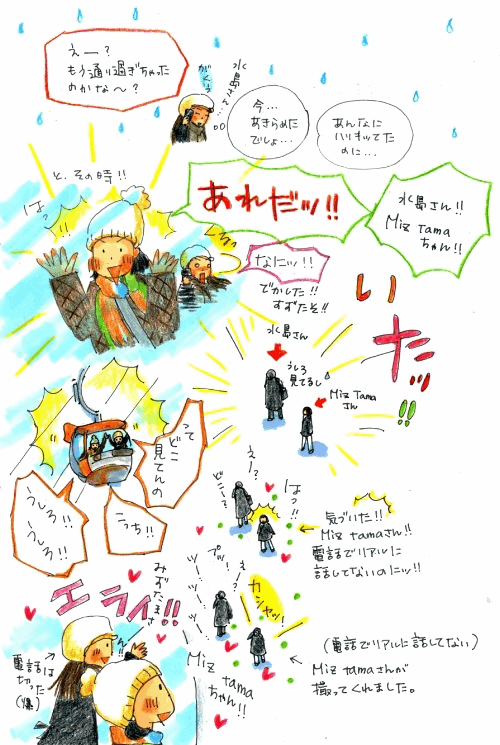 えー？
もう通り過ぎちゃった
のかな〜？
がくっ
水島
さ…は
今…
あきらめた
でしょ…
あんなに
ハリキッてた
のに…
と、その時!!
はっ
あれだッ!!
水島さん!!
Miz tama
ちゃん!!
なにッ!!
でかした!!
すずたそ!!
いたッ!!
水島さん
うしろ
見てるし
Miz Tama
さん
って
どこ
見てんの
こっち!!
うしろ!!
うしろ!!
えー？
どこー？
はっ
気づいた!!
Miz tamaさん!!
電話でリアルに
話してないのにッ!!
エライ!!
みずたまさ
ん!!
え？
プッ
ツー
ツー
カシャッ!
Miz tama
ちゃん!!
電話は
切った
(爆)
(電話でリアルに話してない)
Miz tamaさんが
撮ってくれました。